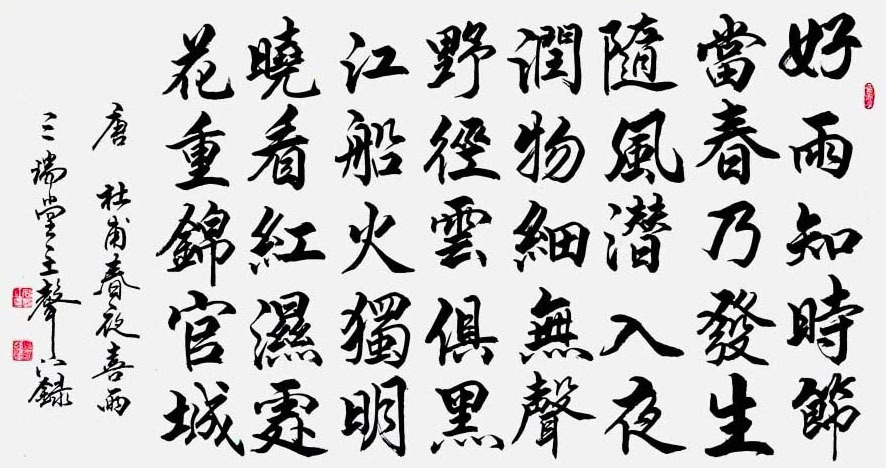 好雨知時節
當春乃發生
隨風潛入夜
潤物細無聲
野徑雲俱黑
江船火獨明
曉看紅濕處
花重錦官城
唐 杜甫春夜喜雨
三瑞堂王聲
錄